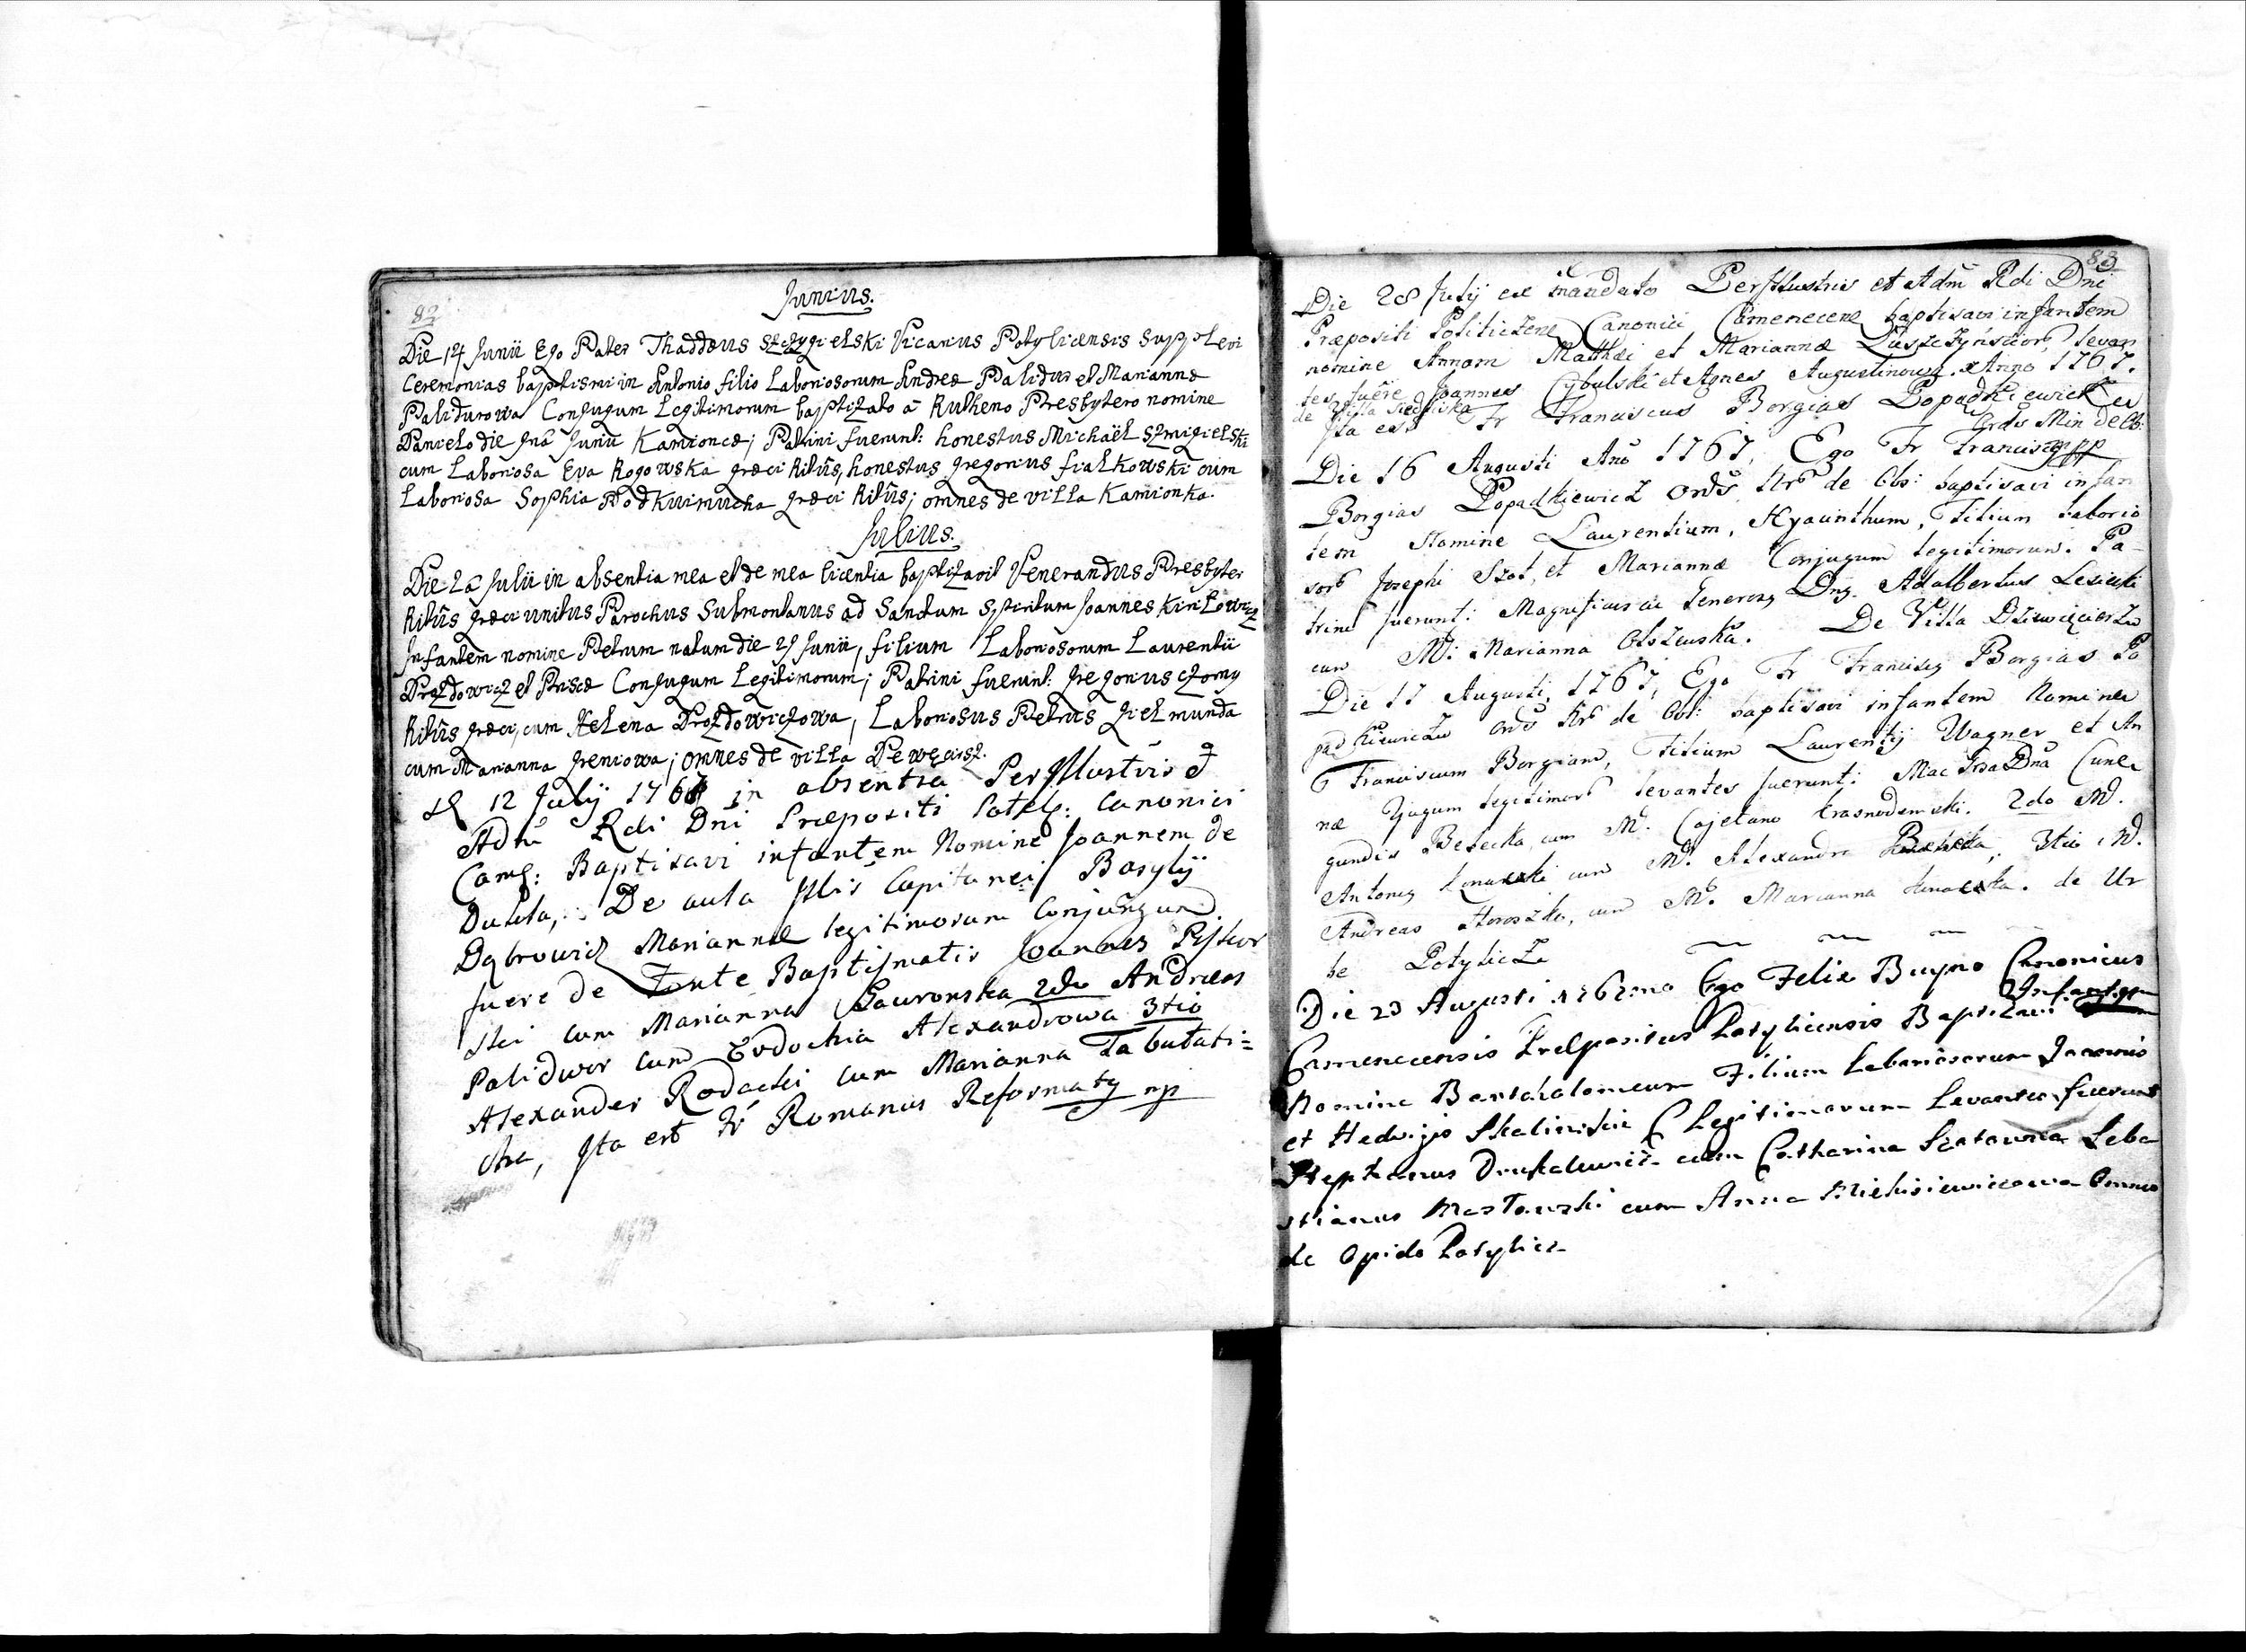 82
Junius.
Die 14 Junii Ego Pater Thaddæus Szczygielski Vicarius Potylicensis Supplevi
Ceremonias baptismi in Antonio filio Laboriosorum Andreæ Palidur et Mariannæ
Palidurowa Conjugum Legitimorum baptizato a Rutheno Presbytero nomine
Danielo die Junii Kamioncæ; Patrini fuerunt: honestus Michaël Szmigielski
cum Laboriosa Eva Rogowska græci Ritûs, honestus Gregorius Fiałkowski cum
Laboriosa Sophia græci Ritûs; omnes de villa Kamionka.
Julius.
Die 2a Julii in absentia mea et de mea licentia baptizavit Venerandus Presbyter
Ritûs græci unitus Parochus Submontanus ad Sanctum Spiritum Joannes Kiriłowicz
Infantem nomine Petrum natum die 29 Junii, filium Laboriosorum Laurentii
Drozdowicz et Priscæ Conjugum Legitimorum; Patrini fuerunt: Gregorius Czorny
Ritûs græci, cum Helena Drozdowiczowa, Laboriosus Petrus Gielmunda
cum Marianna Greniowa; omnes de villa Dewęcirz.
12 July 1767 in absentia Perillustris &
Adm Rdi Dni Præpositi Potyl: Canonici
Cam: Baptisavi infantem Nomine Joannem de
Dukla, De aula Illis Capitanei Basylij
Dąbrowicz Mariannæ legitimorum Conjungum
fuere de Fonte Baptismatis Joannes
cum Marianna Gauronska 2do Andreas
Palidwor cum Evdochia Alexandrowa 3tio
Alexander Rodacki cum Marianna Tabulati=
Ita est Fr Romanus Reformatg mp
83
Die 28 Julij ex mandato Perillustris et Adm Rdi Dni
Præpositi Canonici Camenecen baptisavi infantem
nomine Annam Matthæi et Mariannæ levan
tes fuere Joannes Cybulski et Agnes Augustinowa. Anno 1767.
de Villa Siedliska
Ita est Fr Franciscus Borgias Popadkiewicz
Ordis Min de Ob:
Die 16 Augusti Ano 1767, Ego Fr Francisg
Borgias Popadkiewicz Ordis de Obs: baptisavi infan
tem Nomine Laurentium, Hyacinthum, Filium Laborio
sorũ Josephi Szot, et Mariannæ Conjugum legitimorum. Pa-
trini fuerunt: Magnificus ac Generosg Dng. Adalbertus Lesicki
cum M: Marianna Olszewska. De Villa
Die 17 Augusti, 1767, Ego Fr Francisg Borgias Po
padkiewicz Ordis de Obs: baptisavi infantem Nomine
Franciscum Borgiam, Filium Laurentij Wagner et An
næ jugum legitimorũ levantes fuerunt: Dna Cune
gundis Betecka, cum M. Cajetano Krasnodemski. 2do M.
Antong cum M. Alexandra 3tio M.
Andreas Horoszko, cum M. Marianna de Ur
be Potylicz
Die 23 Augusti Ego Felix Buyno Canonicus
Camenecensis Præpositus Potylicensis Baptizavi Infantem
Nomine Bartholomeum Filium Laboriosorum Joannis
et Hedwigis Skalinskie C Legitimorum Levantes fuerunt
Stephanus cum Catharina Szotowna Seba
stianus Masłowski cum Anna omnes
de Opido Potylicz